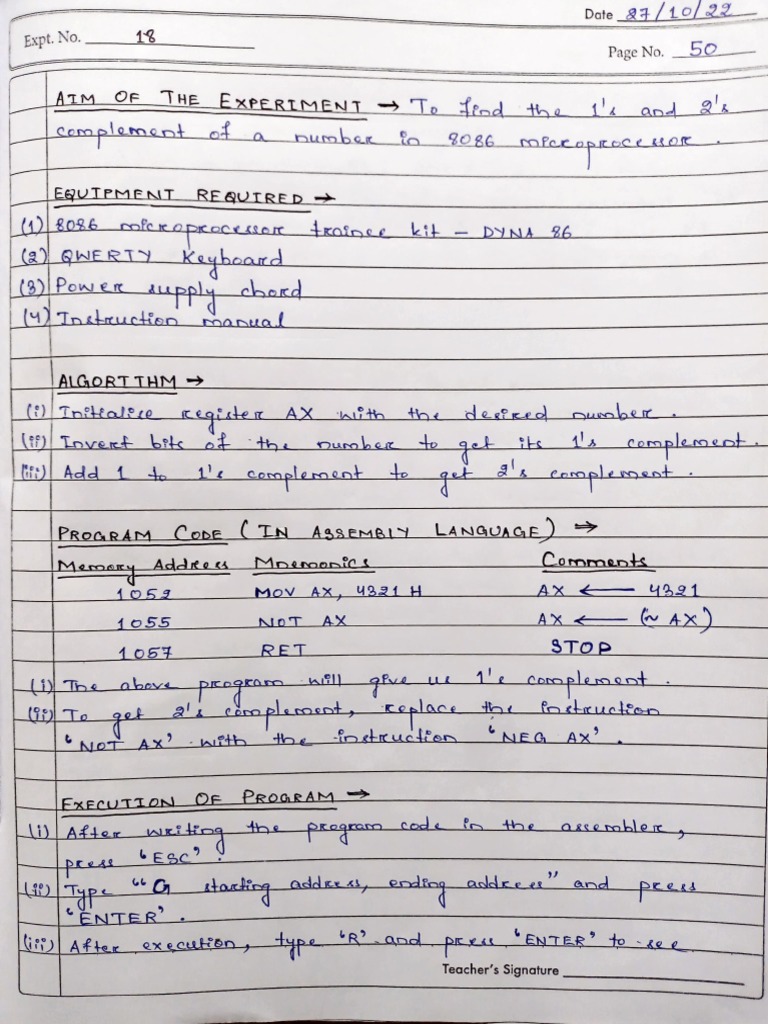 Date 27/10/22
Expt. No. 18
Page No. 50
AIM OF THE EXPERIMENT → To find the 1's and 2's
complement of a number in 8086 microprocessor.
EQUIPMENT REQUIRED →
(1) 8086 microprocessor trainer kit - DYNA 86
(2) QWERTY Keyboard
(3) Power supply chord
(4) Instruction manual
ALGORITHM →
(i) Initialise register AX with the desired number.
(ii) Invert bits of the number to get its 1's complement.
(iii) Add 1 to 1's complement to get 2's complement.
PROGRAM CODE (IN ASSEMBLY LANGUAGE) →
Memory Address Mnemonics Comments
1052 MOV AX, 4321 H AX ← 4321
1055 NOT AX AX ← (~ AX)
1057 RET STOP
(i) The above program will give us 1's complement.
(ii) To get 2's complement, replace the instruction
'NOT AX' with the instruction 'NEG AX'.
EXECUTION OF PROGRAM →
(i) After writing the program code in the assembler,
press 'ESC'.
(ii) Type "G starting address, ending address" and press
'ENTER'.
(iii) After execution, type 'R' and press 'ENTER' to see
Teacher's Signature